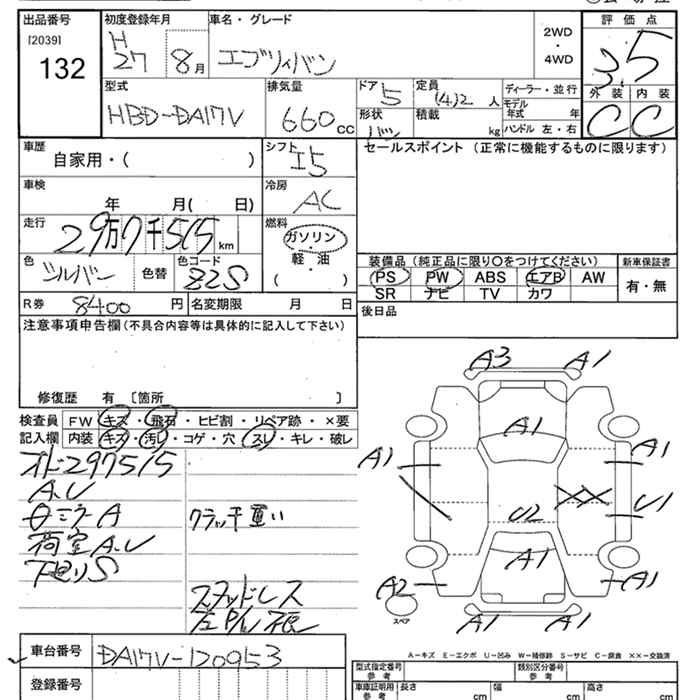 出品番号 初度登録年月 車名・グレード 評価点
[2039] H
132 27 8月 エブリィバン 2WD・4WD 3.5
型式 排気量 ドア 定員 ディーラー・並行 外装 内装
HBD-DA17V 660 CC 5 (4)2人 モデル年式 年 C C
形状 積載 kg ハンドル 左・右
バン
車歴 シフト セールスポイント (正常に機能するものに限ります)
自家用・( ) I5
車検 冷房
年 月( 日) AC
走行 燃料
29万7千515km ガソリン・軽・油
( )
色 色替 色コード
シルバー Z2S
装備品 (純正品に限り○をつけてください) 新車保証書
PS PW ABS エアB AW 有・無
SR ナビ TV カワ
R券 8400円 名変期限 月 日
後日品
注意事項申告欄(不具合内容等は具体的に記入して下さい)
修復歴 有 [箇所 ]
検査員 FW キズ・飛石・ヒビ割・リペア跡・×要
記入欄 内装 キズ・汚れ・コゲ・穴・スレ・キレ・破レ
オド297515
A.U
クラッチ重い
荷室A.U
下廻りS
スタッドレス
A3 A1
A1
A1 A1
XX U1
U2
A1
A2 A1
スペア
A1 A1
A-キズ E-エクボ U-凹み W-補修跡 S-サビ C-腐食 XX-交換済
車台番号 DA17V-120953
登録番号
型式指定番号 参考 類別区分番号 参考
車庫証明用 参考 長さ cm 幅 cm 高さ cm